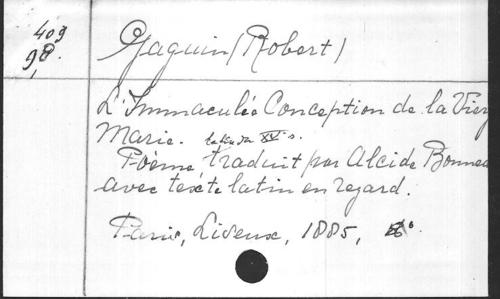 409
98.
Gaguin (Robert)
L'Immaculée Conception de la Vier
Marie. latin du XV s.
Poème traduit par Alcide Bonneau
avec texte latin en regard.
Paris, Liseux, 1885,